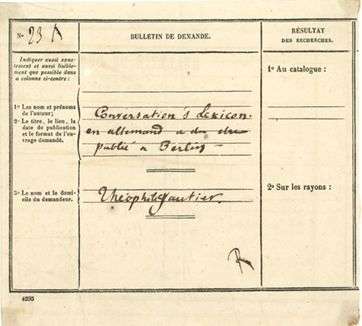 N° 23 A
BULLETIN DE DEMANDE.
RÉSULTAT
DES RECHERCHES.
Indiquer aussi exac-
tement et aussi lisible-
ment que possible dans
la colonne ci-contre :
1° Les nom et prénoms
de l'auteur;
2° Le titre, le lieu, la
date de publication
et le format de l'ou-
vrage demandé.
Conversation's Lexicon
en allemand a du être
publié a Berlin
3° Le nom et le domi-
cile du demandeur.
Théophile Gautier.
R
1° Au catalogue :
2° Sur les rayons :